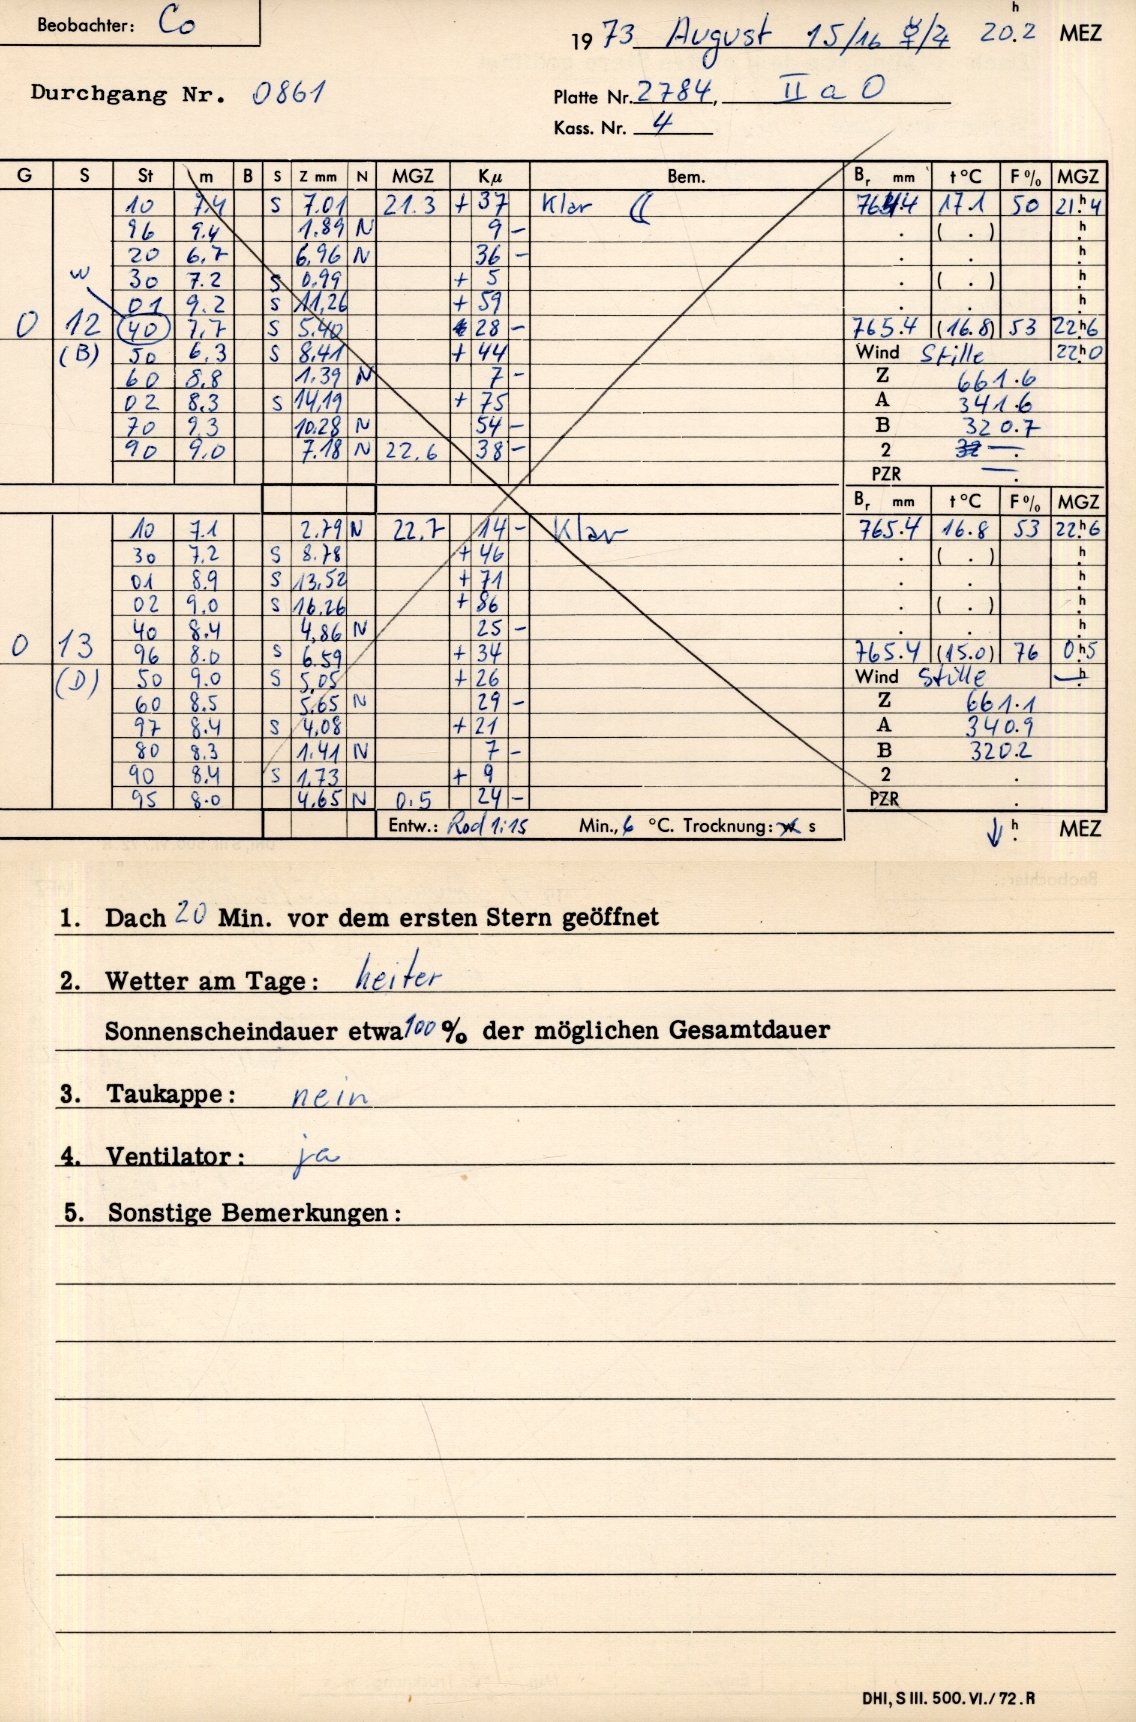 Beobachter: Co
1973 August 15/16 ☿/♃ 20.2 h MEZ
Durchgang Nr. 0861
Platte Nr. 2784, II a O
Kass. Nr. 4
G S St m B S Z mm N MGZ Kμ Bem. Br mm t °C F % MGZ
10 7.4 S 7.01 21.3 + 37 Klar (( 17.1 50 21h4
96 9.4 1.89 N 9 - . ( . ) h
20 6.7 6.96 N 36 - . . h
w 30 7.2 S 0.99 + 5 . ( . ) h
01 9.2 S 11,26 + 59 . . h
0 12 40 7.7 S 5.40 28 - 765.4 (16.8) 53 22h6
(B) 50 6.3 S 8.41 + 44 Wind Stille 22h0
60 8.8 1.39 N 7 - Z 661.6
02 8.3 S 14,19 + 75 A 341.6
70 9.3 10.28 N 54 - B 320.7
90 9.0 7.18 N 22.6 38 - 2 — .
PZR — .
Br mm t °C F % MGZ
10 7.1 2.79 N 22.7 14 - Klar 765.4 16.8 53 22h6
30 7.2 S 8.78 + 46 . ( . ) h
01 8.9 S 13,52 + 71 . . h
02 9.0 S 16.26 + 86 . ( . ) h
40 8.4 4,86 N 25 - . . h
0 13 96 8.0 S 6.59 + 34 765.4 (15.0) 76 0h5
(D) 50 9.0 S 5,05 + 26 Wind Stille — h
60 8.5 5.65 N 29 - Z 661.1
97 8.4 S 4,08 + 21 A 340.9
80 8.3 1.41 N 7 - B 320.2
90 8.4 S 1.73 + 9 2 .
95 8.0 4,65 N 0.5 24 - PZR .
Entw.: Rod 1:15 Min., 6 °C. Trocknung: s ↓ h MEZ
1. Dach 20 Min. vor dem ersten Stern geöffnet
2. Wetter am Tage: heiter
Sonnenscheindauer etwa 100 % der möglichen Gesamtdauer
3. Taukappe: nein
4. Ventilator: ja
5. Sonstige Bemerkungen:
DHI, S III. 500. VI./72. R